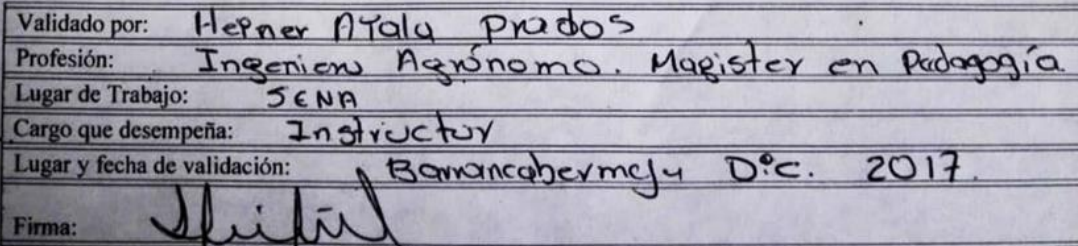 Validado por: Hepner Ayala Prados
Profesión: Ingeniero Agrónomo. Magister en Pedagogía
Lugar de Trabajo: SENA
Cargo que desempeña: Instructor
Lugar y fecha de validación: Barrancabermeja Dic. 2017.
Firma: